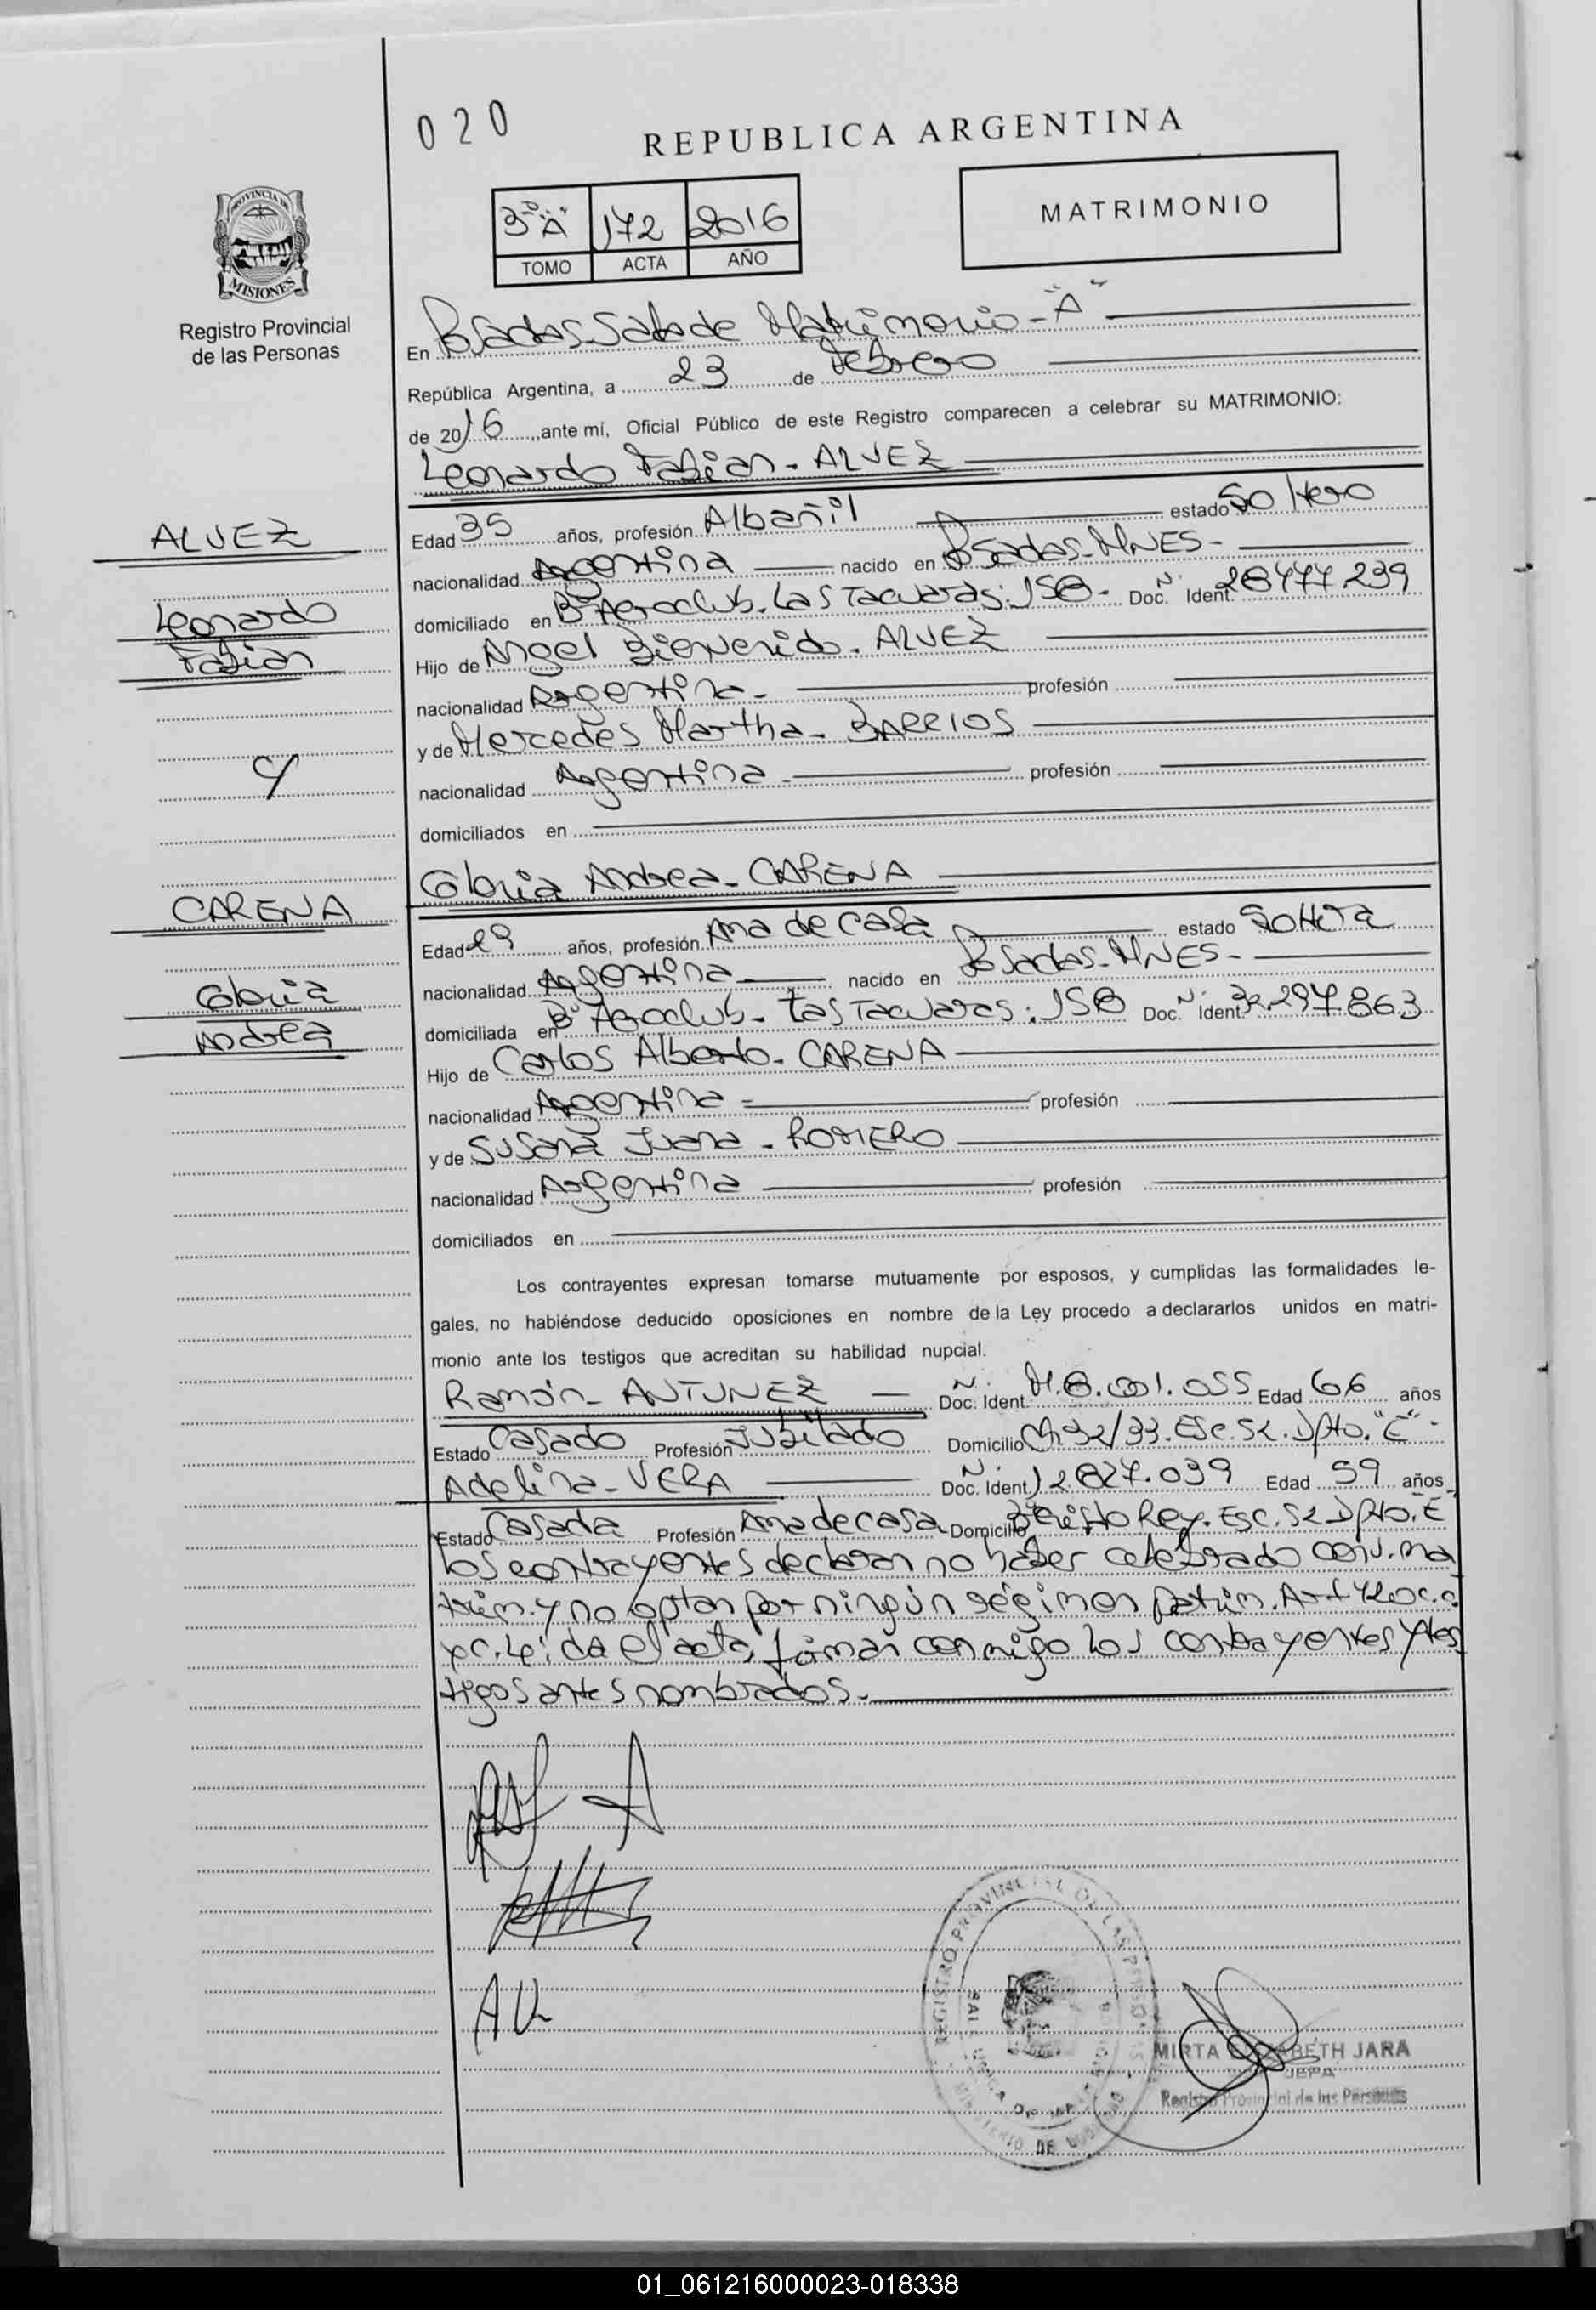 020
REPUBLICA ARGENTINA
3º "A" 172 2016
TOMO ACTA AÑO
MATRIMONIO
PROVINCIA DE
MISIONES
Registro Provincial
de las Personas
En Posadas-Sala de Matrimonio-"A"
República Argentina, a 23 de Febrero
de 2016, ante mí, Oficial Público de este Registro comparecen a celebrar su MATRIMONIO:
Leonardo Fabian - ALVEZ
ALVEZ
Leonardo
Fabian
c/
CARENA
Gloria
Andrea
Edad 35 años, profesión Albañil estado Soltero
nacionalidad Argentina nacido en Posadas-MNES-
domiciliado en Bº Aeroclub. Las Tacuaras: 158- Doc. Nº Ident. 28477.239
Hijo de Angel Bienvenido. ALVEZ
nacionalidad Argentina- profesión
y de Mercedes Martha- BARRIOS
nacionalidad Argentina- profesión
domiciliados en
Gloria Andrea- CARENA
Edad 29 años, profesión Ama de casa estado Soltera
nacionalidad Argentina nacido en Posadas-MNES-
domiciliada en Bº Aeroclub- Las Tacuaras: 158 Doc. Nº Ident. 32.297.863
Hijo de Carlos Alberto- CARENA
nacionalidad Argentina profesión
y de Susana Juana - ROMERO
nacionalidad Argentina profesión
domiciliados en
Los contrayentes expresan tomarse mutuamente por esposos, y cumplidas las formalidades le-
gales, no habiéndose deducido oposiciones en nombre de la Ley procedo a declararlos unidos en matri-
monio ante los testigos que acreditan su habilidad nupcial.
Ramón- ANTUNEZ Doc. Nº Ident. M.8.001.055 Edad 66 años
Estado Casado Profesión Jubilado Domicilio Ch32/33.Esc.52.Dpto."E"-
Adelina-VERA Doc. Nº Ident. 12.827.039 Edad 59 años
Estado Casada Profesión Ama de casa Domicilio Bº Cristo Rey. Esc.52 Dpto."E"
los contrayentes declaran no haber celebrado conv.ma
trim. y no optan por ningún régimen patrim. Art
Leída el acta, firman conmigo los contrayentes y tes
tigos antes nombrados.-
AV
REGISTRO PROVINCIAL DE LAS PERSONAS
MIRTA ELIZABETH JARA
JEFA
Registro Provincial de las Personas
01_061216000023-018338